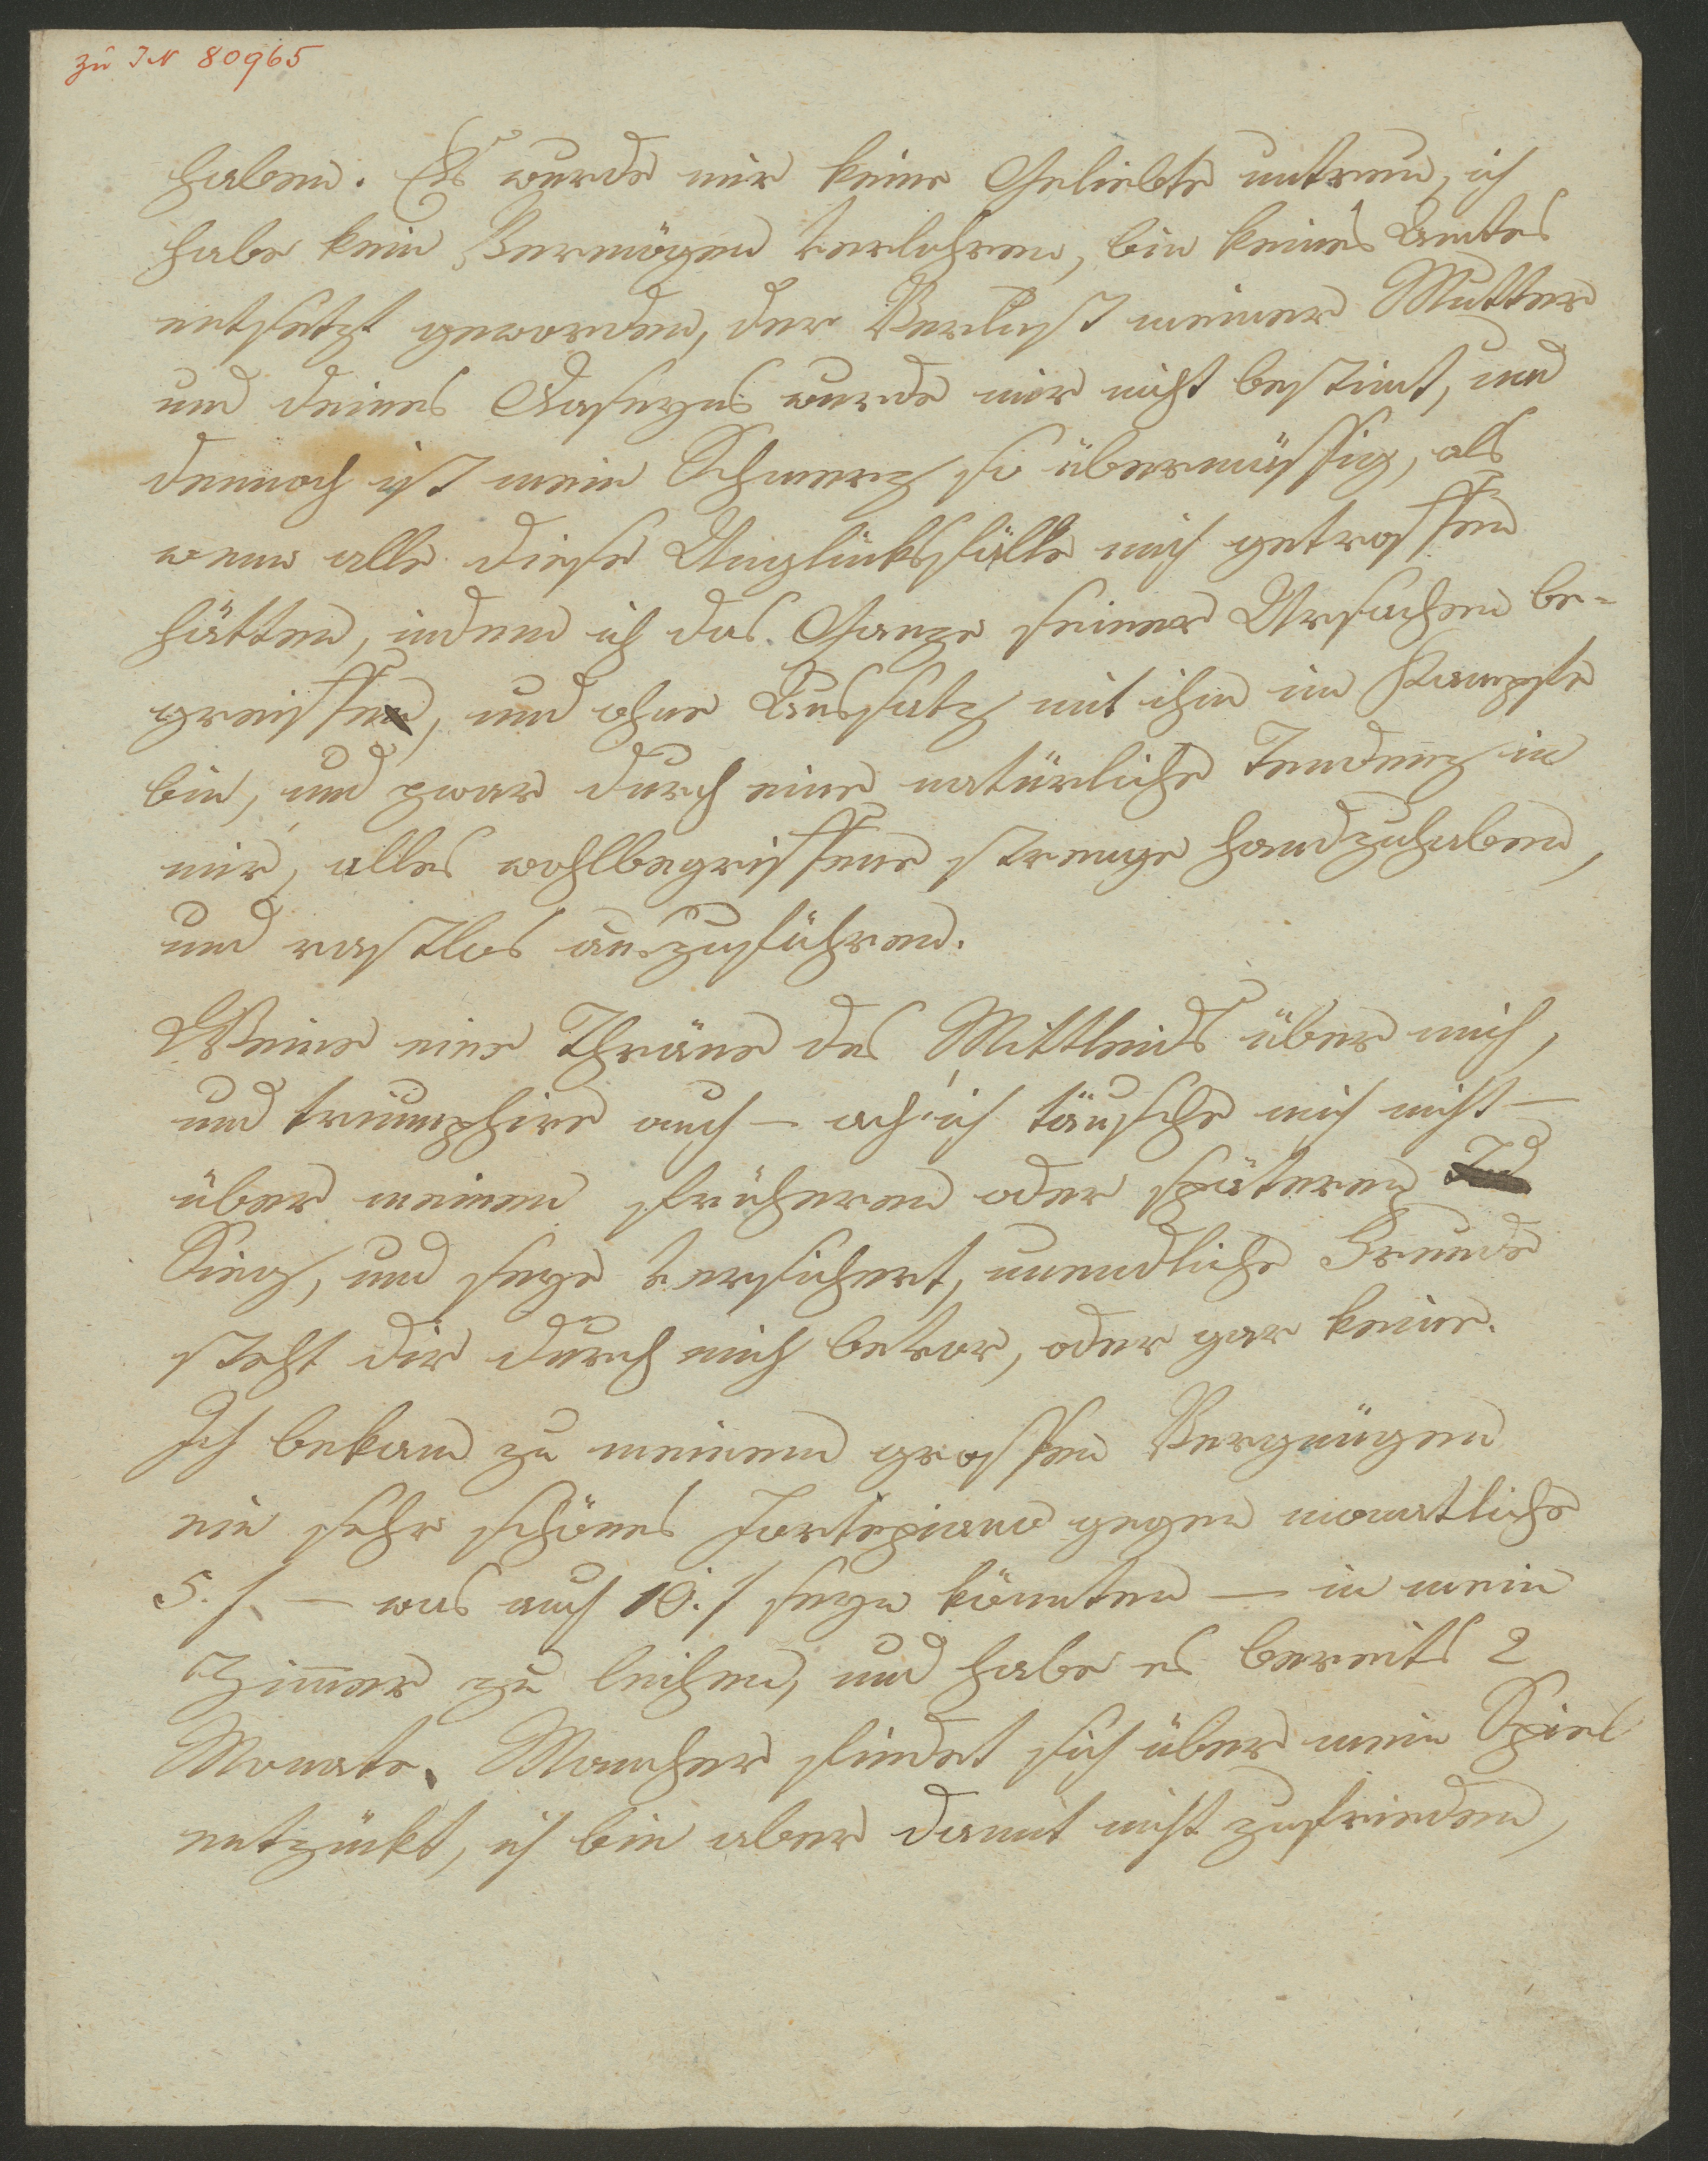 zu IN 80965
haben. Es wurde mir keine Geliebte untreu, ich
habe kein Vermögen verlohren, bin keines Amtes
entsetzt geworden, der Verlust meiner Mutter
und deines Daseyns wurde mir nicht bestimt, und
dennoch ist mein Schmerz so übermässig, als
wenn alle diese Unglücksfälle mich getroffen
hätten, indem ich das Ganze seiner Ursachen be-
greiffe, und ohne Aussatz mit ihm im Kampfe
bin, und zwar durch eine natürliche Tendenz in
mir, alles wohlbegriffene strenge handzuhaben,
und rastlos auszuführen.
Weine eine Thräne des Mittleids über mich,
und triumphire auch – ach! ich täusche mich nicht –
über meinen früheren oder späteren
Sieg, und seye versichert, unendliche Freude
steht dir durch mich bevor, oder gar keine.
Ich bekam zu meinem grossen Vergnügen
ein sehr schönes Fortepiano gegen monatliche
5. f. – was auch 10. f seyn könnten – in mein
Zimmer zu leihen, und habe es bereits 2
Monate. Mancher findet sich über mein Spiel
entzückt, ich bin aber damit nicht zufrieden,